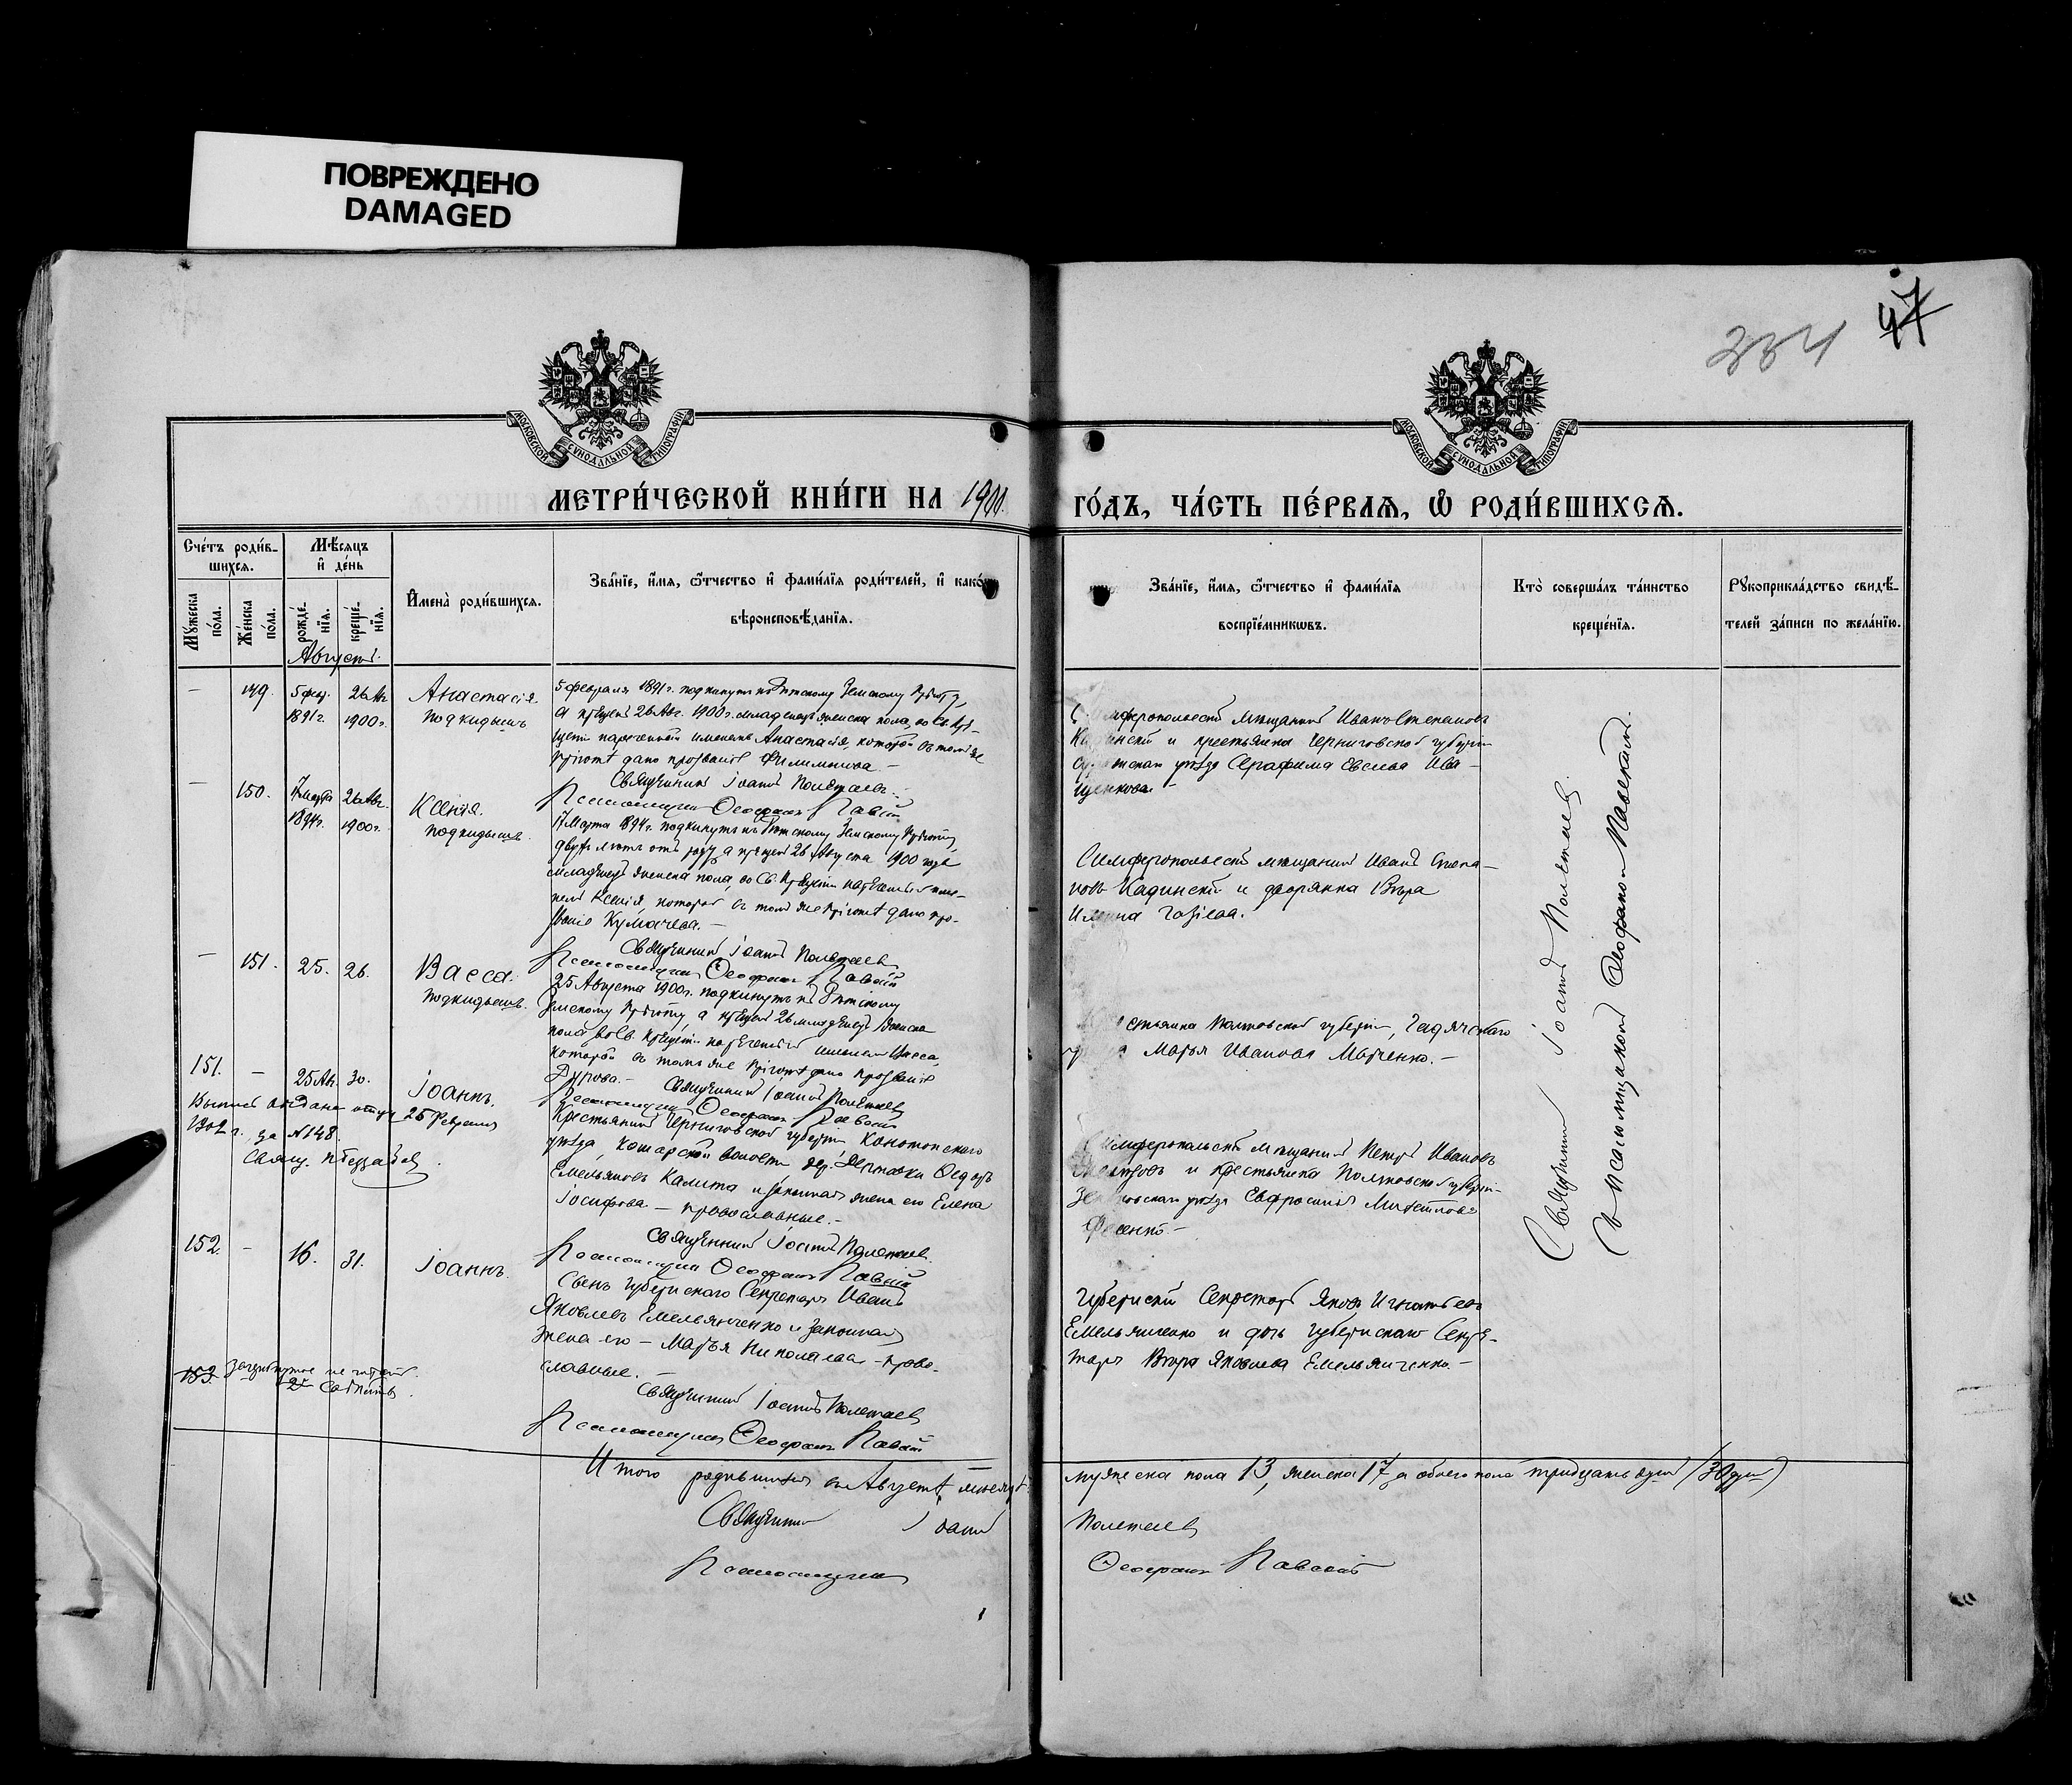 ПОВРЕЖДЕНО
DAMAGED
47
334
МОСКОВСКОЙ СѴНОДАЛЬНОЙ ТИПОГРАФІИ
МОСКОВСКОЙ СѴНОДАЛЬНОЙ ТИПОГРАФІИ
МЕТРИ́ЧЕСКОЙ КНИ́ГИ НА 1900. ГО́ДЪ, ЧА́СТЬ ПЕ́РВАЯ, Ѡ РОДИ́ВШИХСЯ.
Счетъ родившихся.
Мѣсяцъ и день
Мужеска пола.
Женска пола.
рожденія.
крещенія.
Имена родившихся.
Званіе, имя, отчество и фамилія родителей, и какого
вѣроисповѣданія.
Званіе, имя, отчество и фамилія
воспріемниковъ.
Кто совершалъ таинство
крещенія.
Рукоприкладство свидѣ-
телей записи по желанію.
Августъ.
— 149. 5 фев. 1891 г. 26 Авг. 1900 г.
Анастасія
подкидышъ
5 февраля 1891 г. подкинутъ къ Дѣтскому Земскому Пріюту,
а крещенъ 26 Авг. 1900 г. младенецъ женска пола, во Св. Кре-
щеніи нареченный именемъ Анастасія, которой въ томъ же
пріютѣ дано прозваніе Филимонова. —
Священникъ Іоаннъ Полетаевъ.
Псаломщикъ Ѳеофанъ Павскій
Симферопольскій мѣщанинъ Иванъ Степановъ
и крестьянка Черниговской губерніи
уѣзда Серафима Евсеева Ива-
щенкова.
— 150. 17 Марта 1894 г. 26 Авг. 1900 г.
Ксенія.
подкидышъ.
17 Марта 1894 г. подкинутъ къ Дѣтскому Земскому Пріюту,
двухъ лѣтъ отъ роду, а крещенъ 26 Августа 1900 года
младенецъ женска пола, во Св. Крещеніи нареченный име-
немъ Ксенія, которой въ томъ же пріютѣ дано про-
званіе Кумачева. —
Священникъ Іоаннъ Полетаевъ
Псаломщикъ Ѳеофанъ Павскій
Симферопольскій мѣщанинъ Иванъ Степа-
новъ Кадинскій и дворянка Вѣра
— 151. 25. 26.
Васса.
Подкидышъ.
25 Августа 1900 г. подкинутъ къ Дѣтскому
Земскому Пріюту а крещенъ 26 младенецъ женска
пола во Св. Крещеніи нареченный именемъ Васса,
которой въ томъ же Пріютѣ дано прозваніе
Дурова. — Священникъ Іоаннъ Полетаевъ
Псаломщикъ Ѳеофанъ Павскій
Крестьянка Полтавской губерніи, Гадячскаго
уѣзда Марья Иванова Марченко. —
151. — 25 Авг. 30.
Іоаннъ.
1902 г. за № 148.
25 Февраля
Крестьянинъ Черниговской губерніи Конотопскаго
уѣзда, волости дер. Ѳедоръ
Емельяновъ Калита и законная жена его Елена
Іосифова — православные. —
Священникъ Іоаннъ Полетаевъ.
Псаломщикъ Ѳеофанъ Павскій
Симферопольскій мѣщанинъ Петръ Ивановъ
и крестьянка Полтавской губерніи
уѣзда Евфросинія
152. — 16. 31.
Іоаннъ.
Сынъ Губернскаго Секретаря Иванъ
Яковлевъ Емельянченко и законная
жена его — Марья Николаева — право-
славные.
Священникъ Іоаннъ Полетаевъ
Псаломщикъ Ѳеофанъ Павскій
Губернскій Секретарь Яковъ Игнатьевъ
Емельянченко и дочь Губернскаго Секре-
таря Вѣра Яковлева Емельянченко. —
Священникъ Іоаннъ Полетаевъ.
Съ псаломщикомъ Ѳеофаномъ Павскимъ.
153. зачеркнутое не читать.
Итого родившихся въ Августѣ мѣсяцѣ мужеска пола 13, женска 17, а обоего пола тридцать
Священникъ Іоаннъ Полетаевъ
Псаломщикъ Ѳеофанъ Павскій